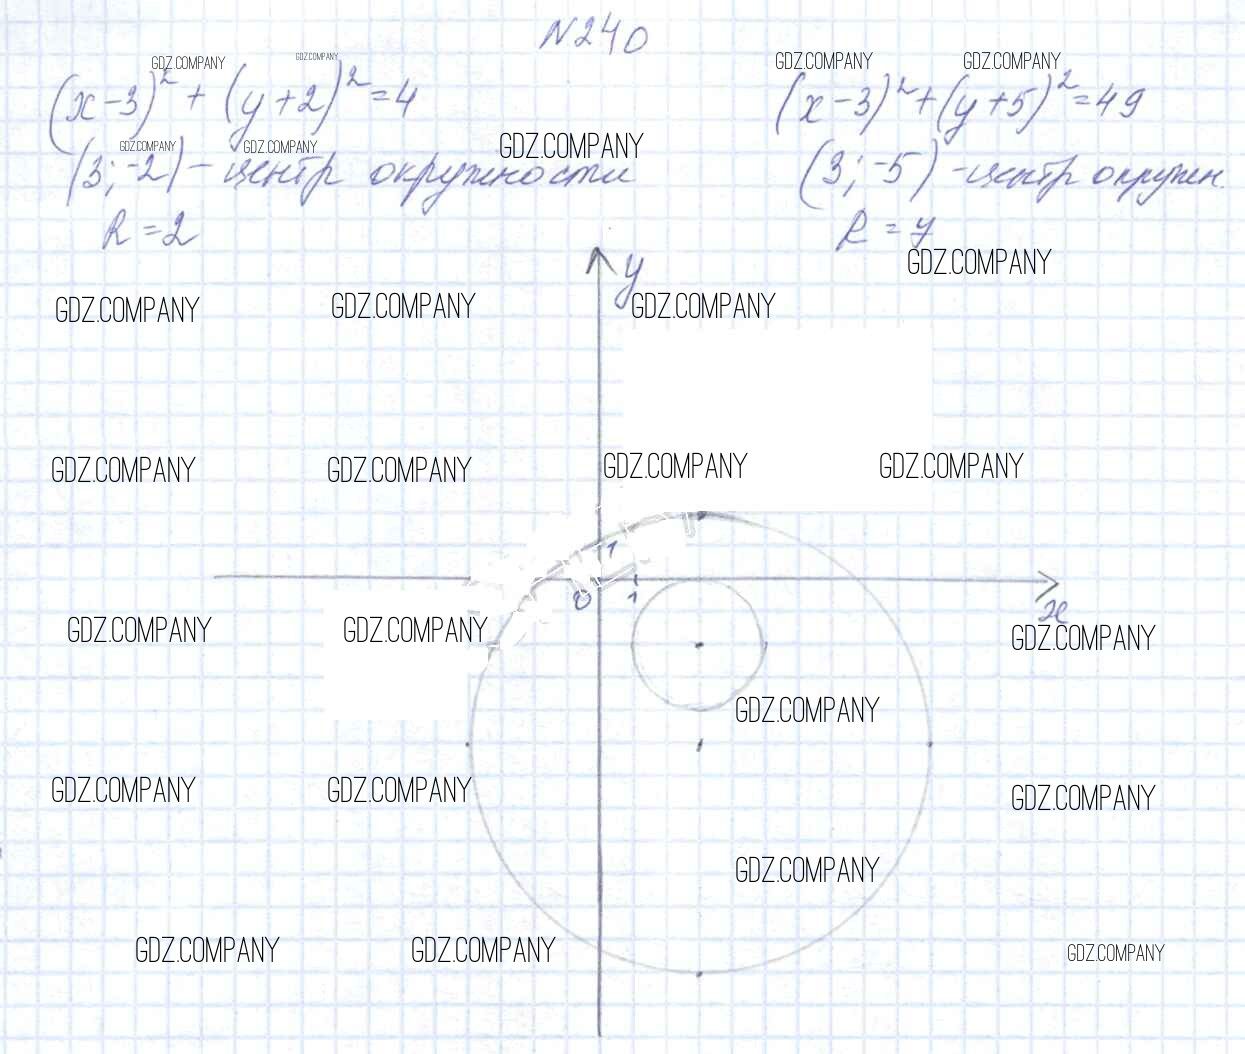 N240
GDZ.COMPANY GDZ.COMPANY GDZ.COMPANY GDZ.COMPANY
(x-3)² + (y+2)² = 4
(x-3)² + (y+5)² = 49
GDZ.COMPANY GDZ.COMPANY GDZ.COMPANY
(3; -2) - центр окружности
(3; -5) - центр окружн.
R = 2
R = 7
GDZ.COMPANY
y
GDZ.COMPANY GDZ.COMPANY GDZ.COMPANY
GDZ.COMPANY GDZ.COMPANY GDZ.COMPANY GDZ.COMPANY
1
0 1 x
GDZ.COMPANY GDZ.COMPANY GDZ.COMPANY
GDZ.COMPANY
GDZ.COMPANY GDZ.COMPANY GDZ.COMPANY
GDZ.COMPANY
GDZ.COMPANY GDZ.COMPANY GDZ.COMPANY